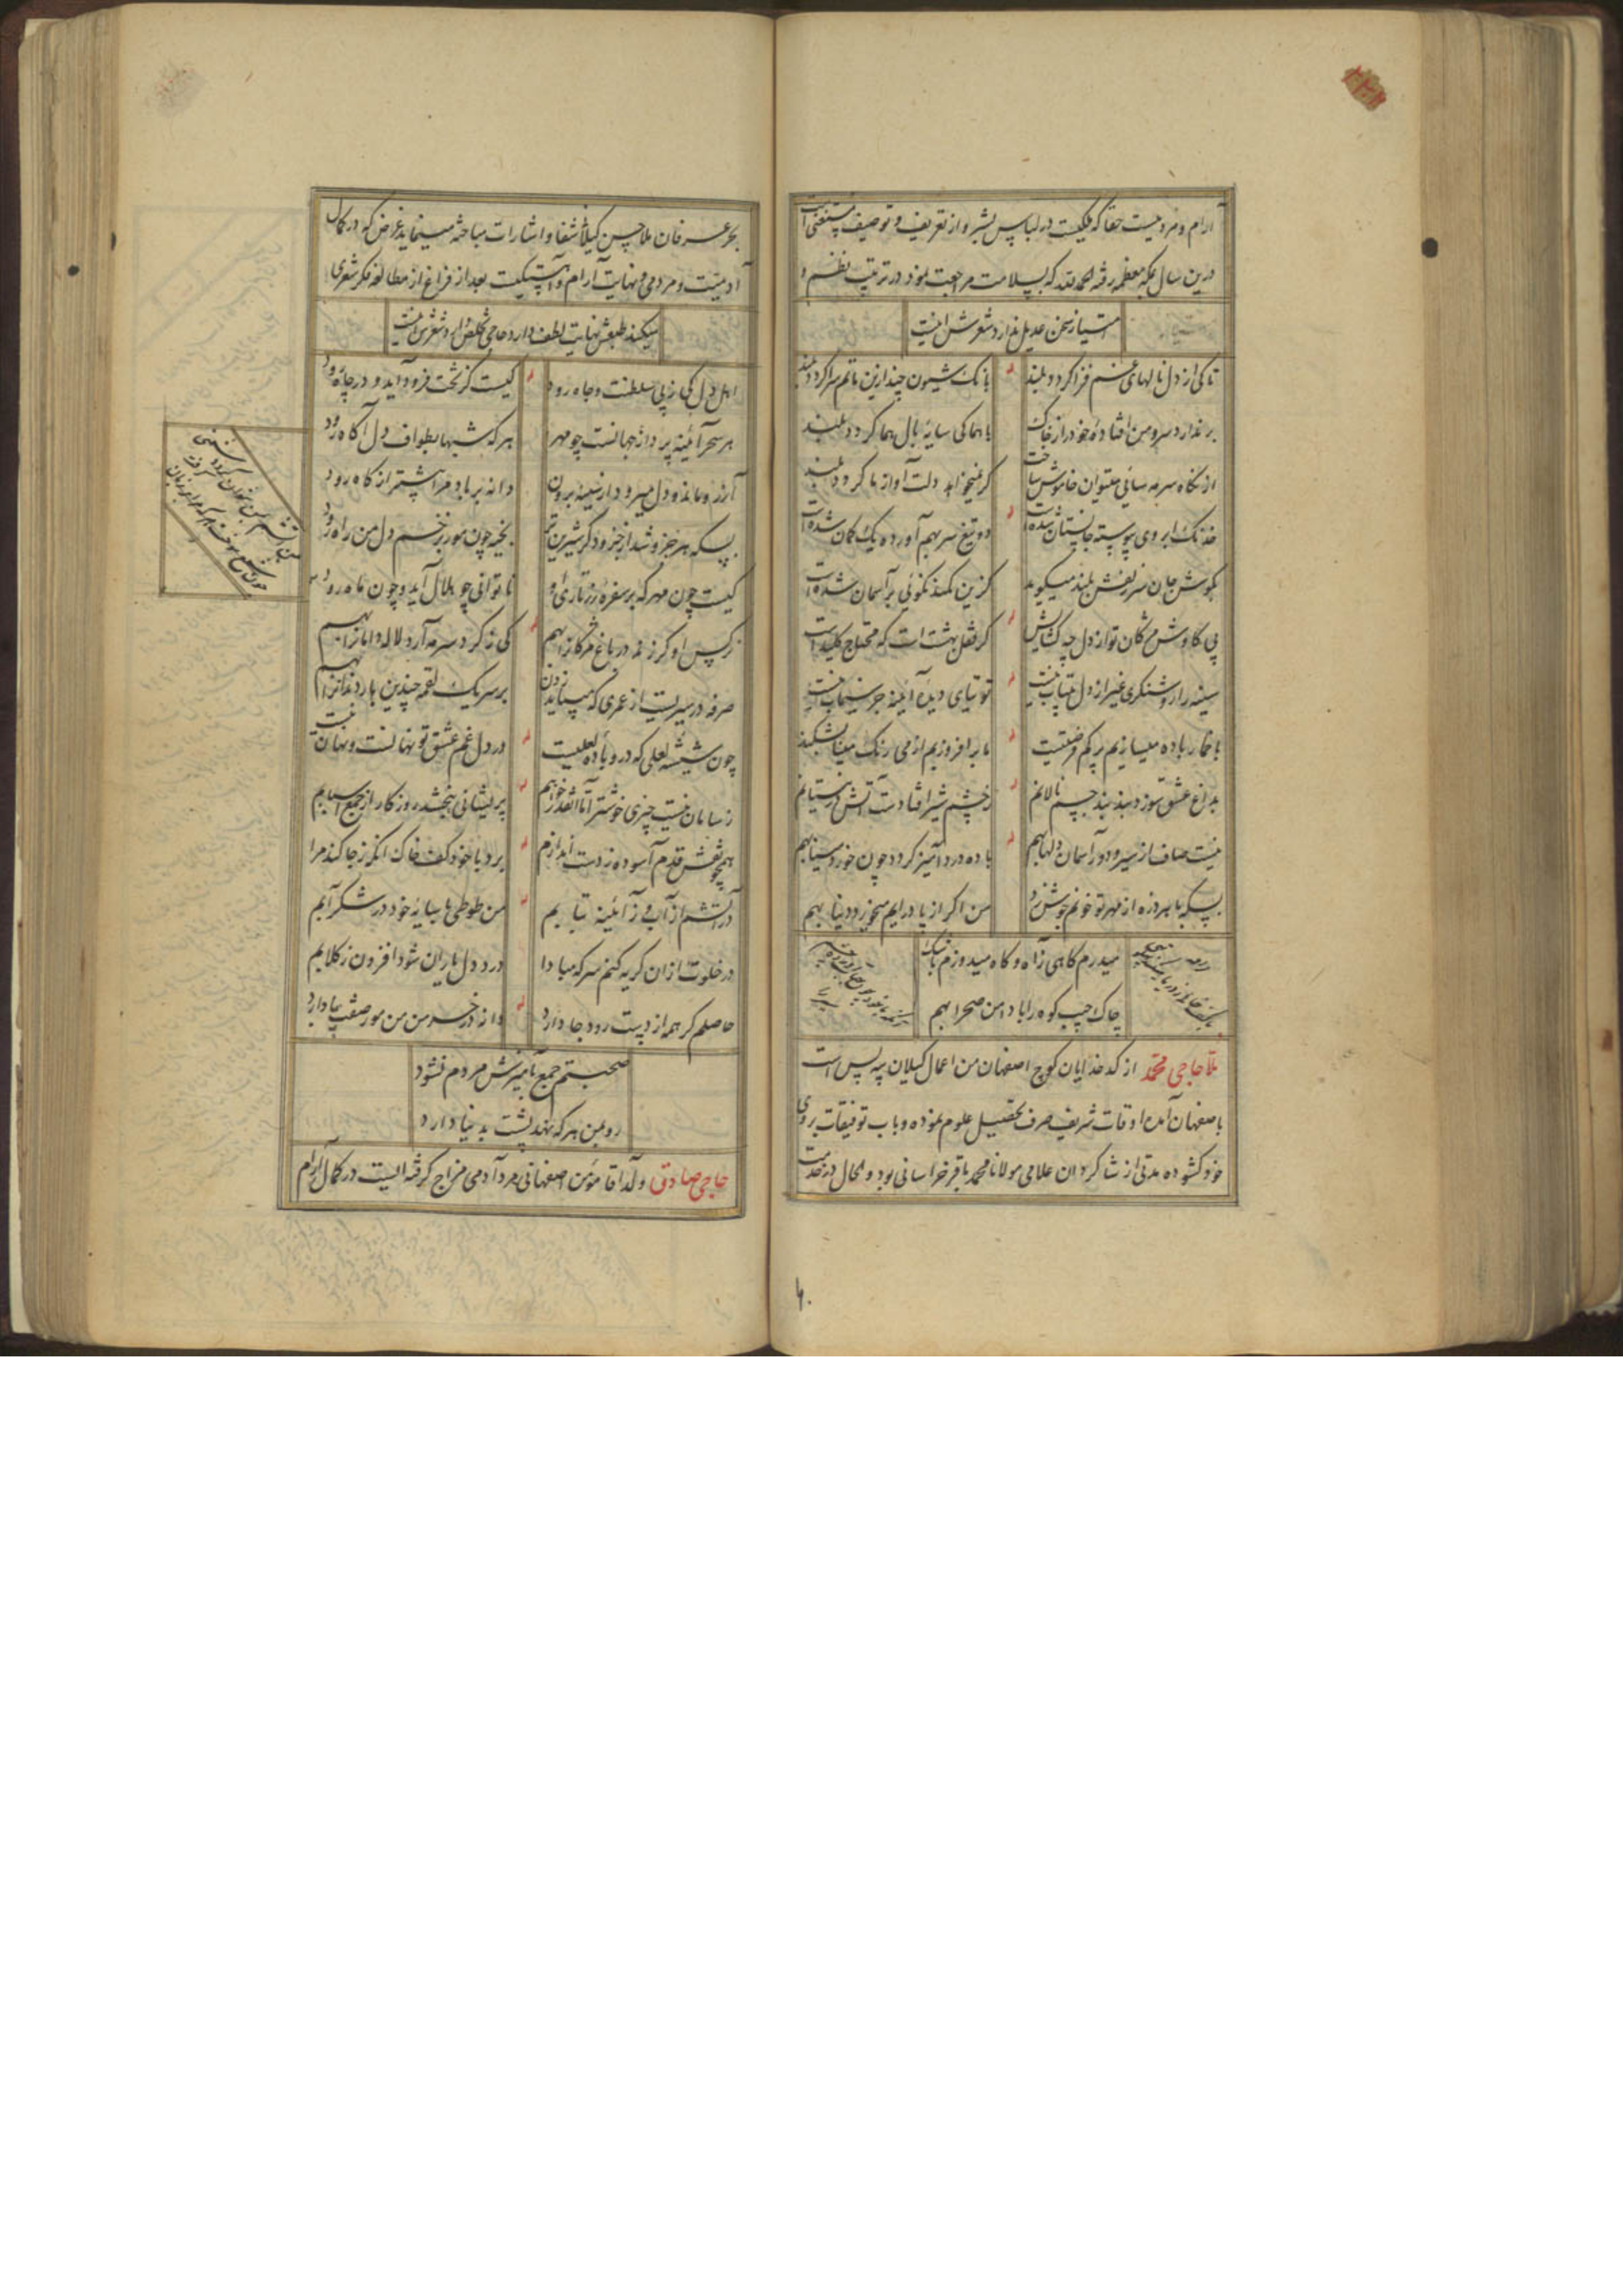 آرام و مردمیست حقا که ملکیست در لباس بشر و از تعریف و توصیف مستغنی است
درین سال بمکه معظمه رفته الحمدلله که بسلامت مراجعت نمود در ترتیب نظم و
امتیاز سخن عدیل ندارد شعرش اینست
تا کی از دل نالهای غم فزا کردد بلند
بانک شیون چند ازین ماتم سرا کردد بلند
بر ندارد سرو من افتادهٔ خود را ز خاک
با هما کی سایهٔ بال هما کردد بلند
از نگاه سرمه سائی میتوان خاموش ساخت
کر نمیخواهد دلت آواز ما کردد بلند
خدنک ابروی پیوسته جانستان شده است
دو تیغ سر بهم آورده یک کمان شده است
بکوش جان سر زلفش بلند میکوید
کزین کمند نکوئی بر آسمان شده است
بی کاوش مژکان تو از دل چه کشایش
کر قفل بهشت است که محتاج کلید است
سینه را روشنکری غیر از دل بیتاب نیست
توتیای دیدهٔ آئینه جز سیماب نیست
با خمار باده میسازیم بر کم فرصتیست
تا بر افروزیم از می رنک مینا بشکند
بداغ عشق سوزد بند بند جسم نالانم
ز چشم شیر افتادست آتش در نیستانم
نیست صاف از سیر و دور آسمان دلها بهم
باده درد آمیز کردد چون خورد مینا بهم
بسکه با هر ذره از مهر تو خونم جوش زد
من اکر از پا درایم میخورد دنیا بهم
میدرم کاهی ز آه و کاه میدوزم باشک
چاک جیب کوه را با دامن صحرا بهم
ملا حاجی محمد از کدخدایان کوچ اصفهان من اعمال کیلان پیه پس است
باصفهان آمده اوقات شریف صرف تحصیل علوم نموده و باب توفیقات بر روی
خود کشوده مدتی از شاکردان علامی مولانا محمد باقر خراسانی بود و الحال در خدمت
بحر عرفان ملا حسن کیلانی شفا و اشارات مباحثه مینماید غرض که در کمال
آدمیت و مردمی و نهایت آرام و آهستگیست بعد از فراغ از مطالعه فکر شعری
میکند طبعش نهایت لطف دارد حاجی تخلص دارد شعرش اینست
اهل دل کی ز پی سلطنت و جاه رود
کیست کز تخت فرود آید و در چاه رود
هر سحر آئینه پرداز جهانست چو مهر
هر که شبها بطواف دل آکاه رود
آرزو ماند و دل میرود از سینه برون
دانه بر باد مرا پیشتر از کاه رود
بسکه هر جزو شد از جزو دکر شیرین تر
بخیه چون مور بزخم دل من راه رود
کیست چون مهر که بر سفرهٔ زرتاری او
ناتوانی چو هلال آید و چون ماه رود
نرکس او کر زند در باغ مژکان را بهم
کی ز کرد سرمه آرد لاله دامان را بهم
صرفه در سیریست از عمری که میباید زدن
بر سر یک لقمه چندین بار دندان را بهم
چون شیشه لعلی که درو بادهٔ لعلیست
در دل غم عشق تو نهانست و نهان نیست
ز سامان نیست چیزی خوشتر اما آنقدر خواهم
پریشانی نبخشد روزکار از جمع اسبابم
همچو نقش قدم آسوده ز دست اندازم
برد با خود بکف خاک آنکه ز جا کند مرا
در آتشم از آب و ز آئینه بتابم
من طوطی با سایهٔ خود در شکرابم
در خلوت از ان کریه کنم سر که مبادا
درد دل یاران شود افزون ز کلابم
حاصلم کر همه از دست رود جا دارد
دانه در خرمن من مور صفت پا دارد
صحبتم جمع بآمیزش مردم نشود
رو بمن هر که نهد پشت بدنیا دارد
حاجی صادق ولد آقا مؤمن اصفهانی مرد آدمی مزاج کرفته ایست در کمال آرام